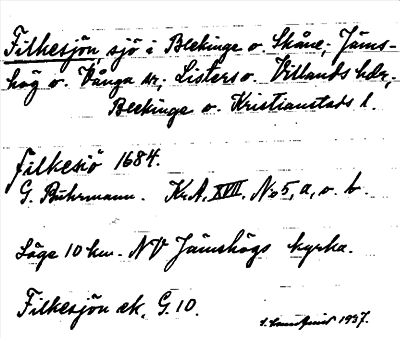 Filkesjön, sjö i Blekinge o. Skåne; Jäms-
hög o. Vånga sn; Listers o. Villands hdr;
Blekinge o. Kristianstads l.
Filkesiö 1684.
G. Buhrmann. Kr.A. XVII. No 5, a, o. b.
Läge 10 km. NV Jämshögs kyrka.
Filkesjön ek. G. 10.
1937.